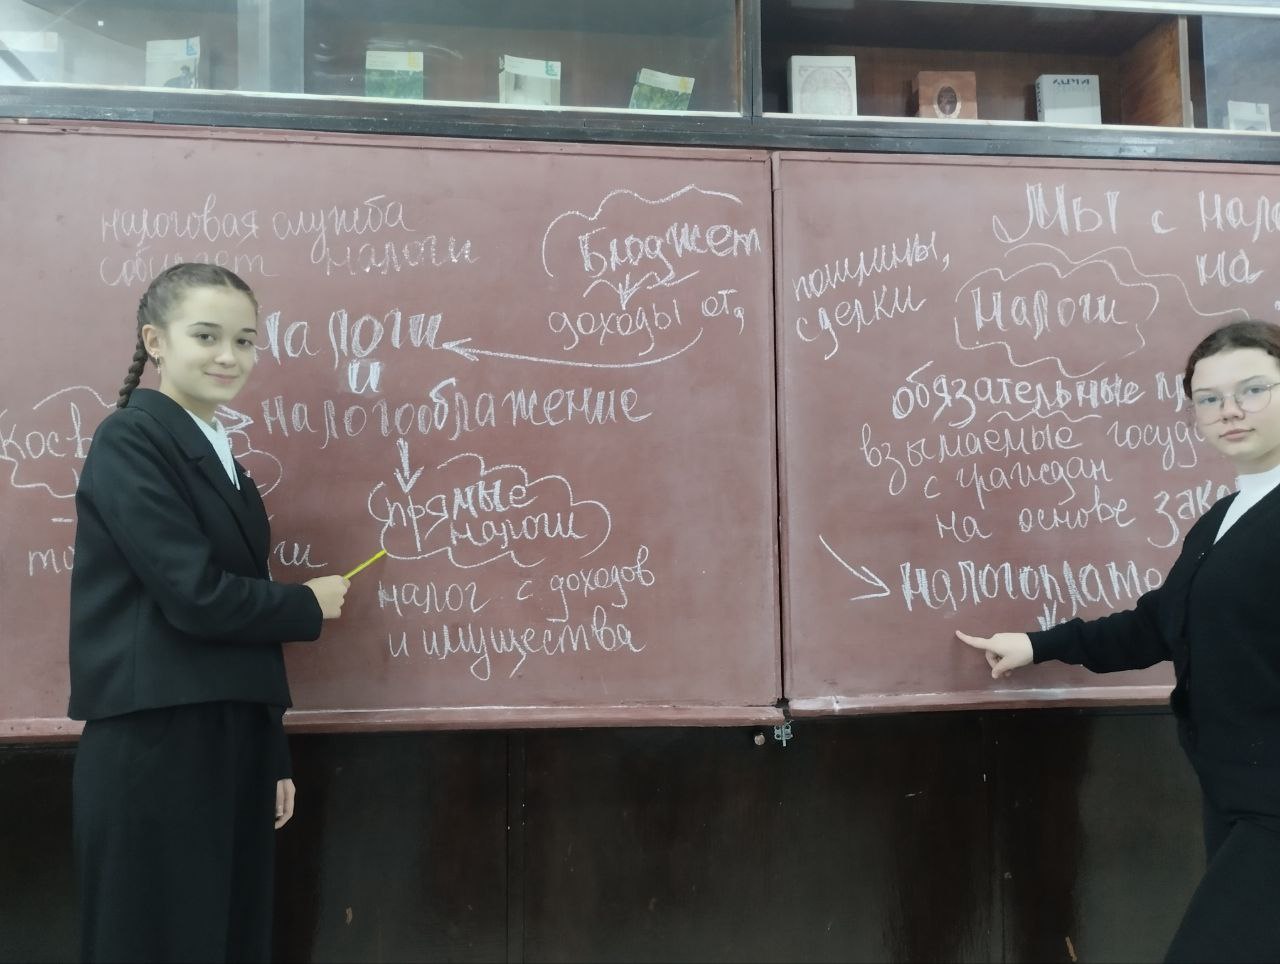 налоговая служба
собирает налоги
Бюджет
доходы от,
налоги
и
налогооблажение
Косв
прямые
налоги
налог с доходов
и имущества
Мы с нало
на
пошлины,
сделки
Налоги
обязательные пр
взымаемые госуд
с граждан
на основе зако
налогоплате